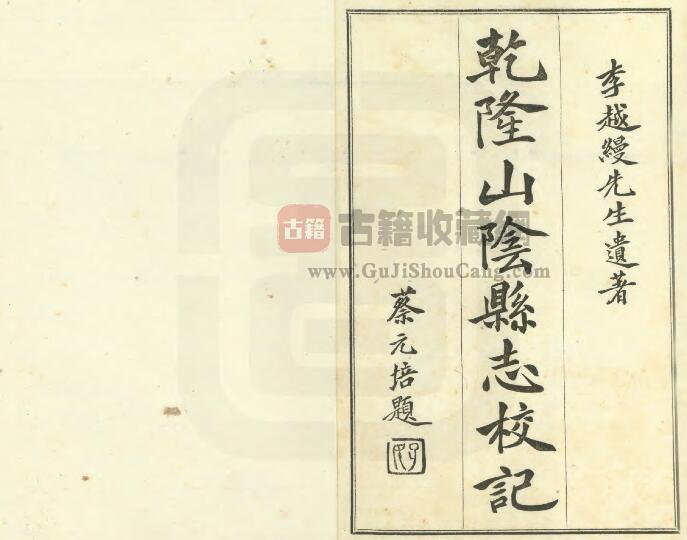 李越縵先生遺著
乾隆山陰縣志校記
蔡元培題
古籍
古籍收藏網
www.GuJiShouCang.com